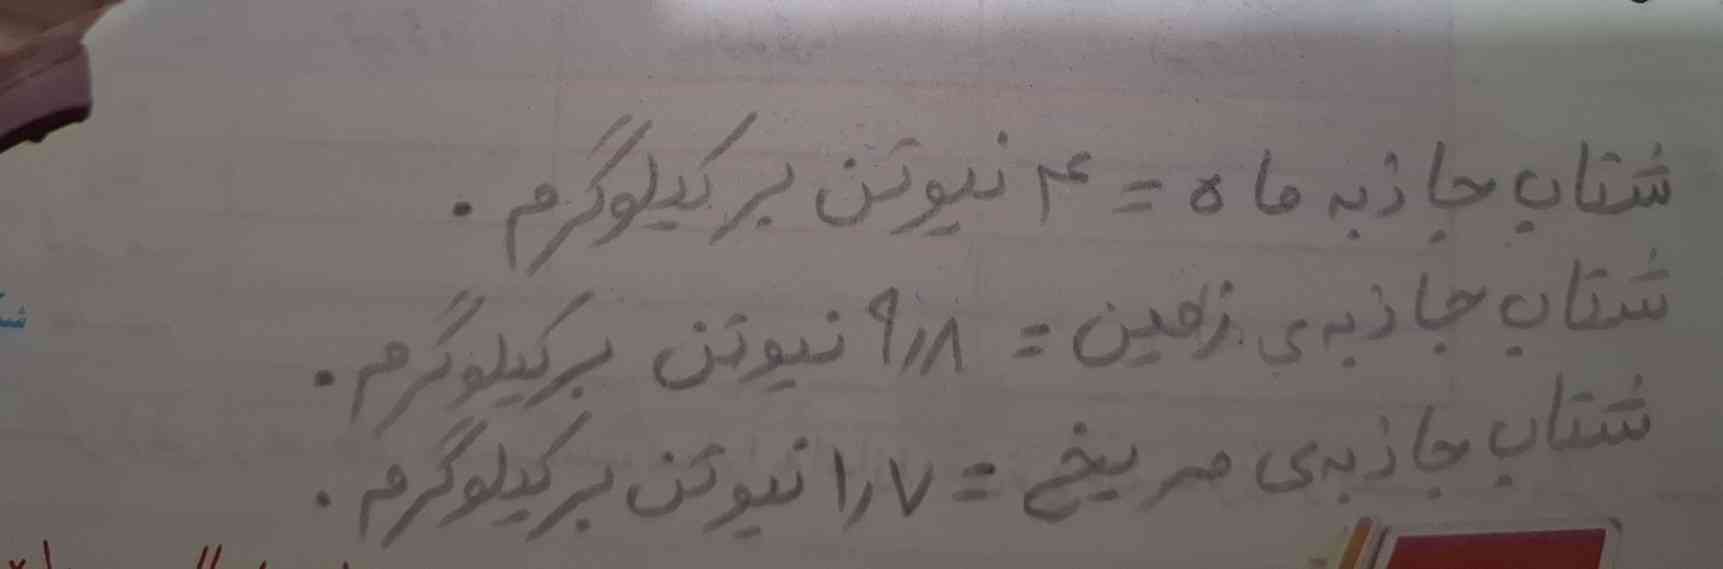 شتاب جاذبه ماه = ۴ نیوتن بر کیلوگرم .
شتاب جاذبه ی زمین = ۹٫۸ نیوتن بر کیلوگرم .
شتاب جاذبه ی مریخ = ۱٫۷ نیوتن بر کیلوگرم .